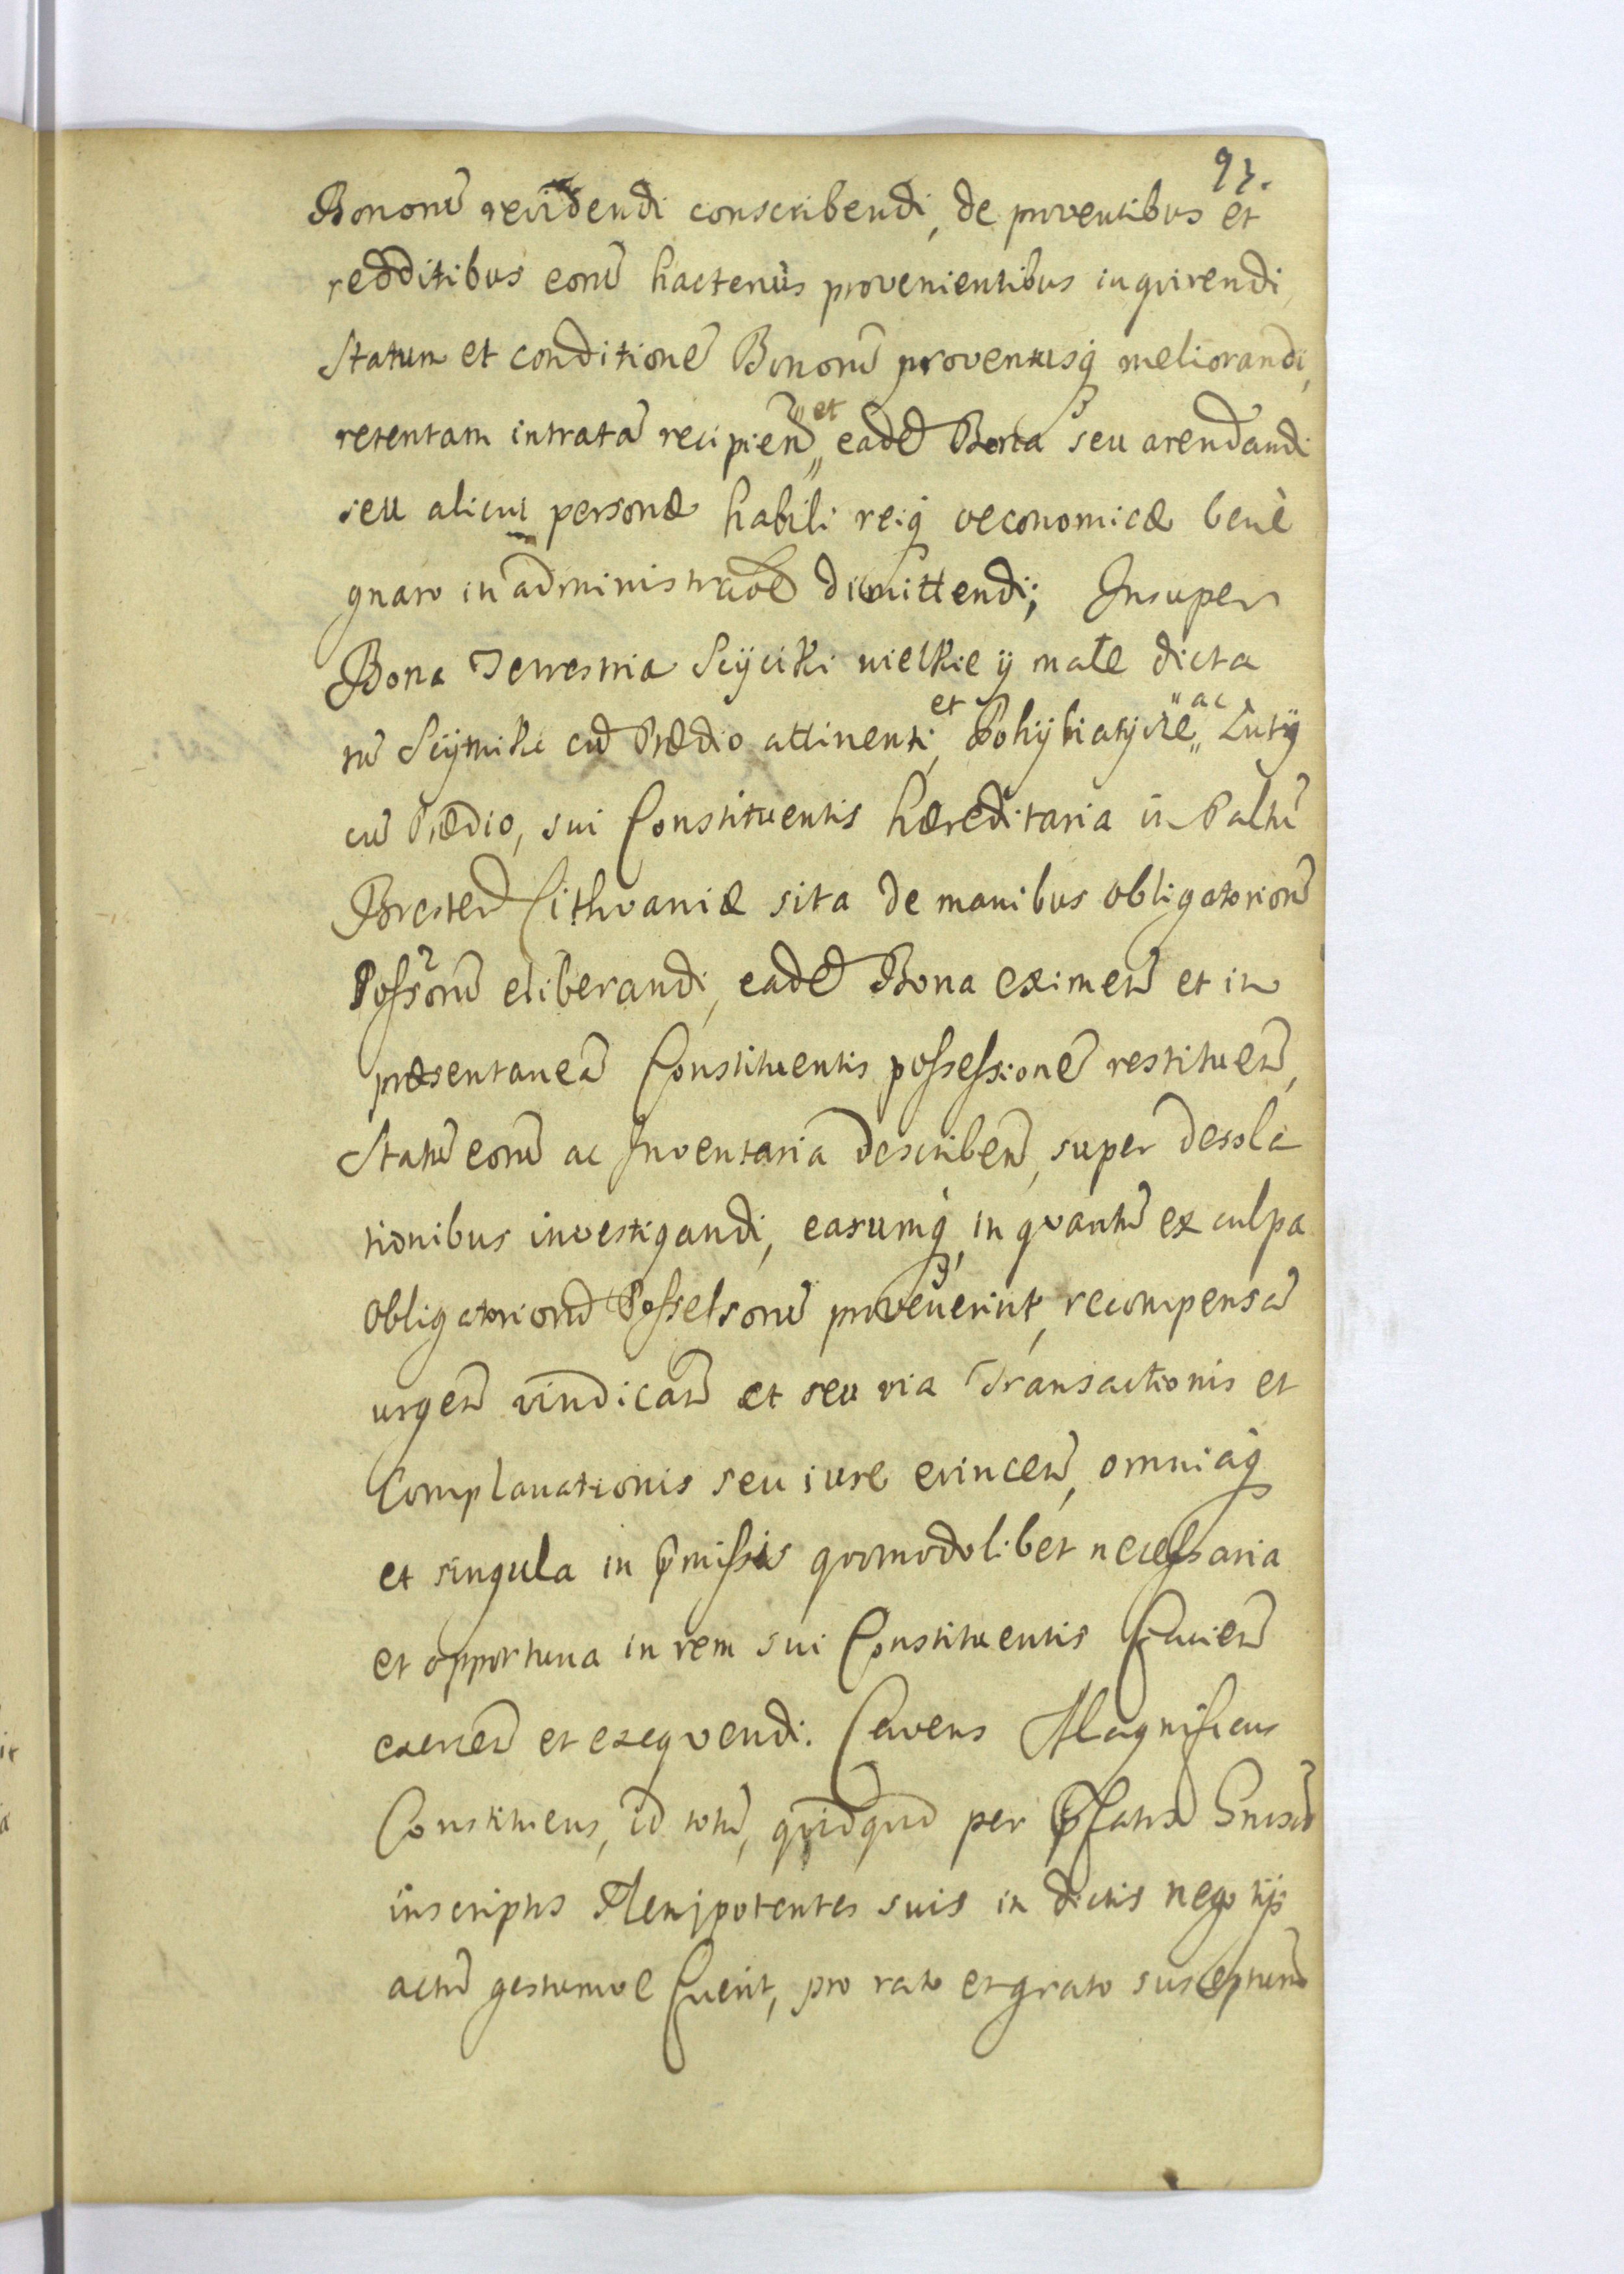 93.
Bonorū revidendi conscribendi, de proventibus et
redditibus eorū hactenùs provenientibus inqvirendi,
Statum et conditionē Bonorū proventusq̨ meliorandi,
retentam intratā recipien̄ " et eadē Bona seu arendandi
seu alicui personæ habili reiq̨ oeconomicæ benè
gnaro in administraōē dimittendi; Insuper
Bona Terrestria Scÿciki wielkie ÿ małe dicta
tū Scÿmiki cū Prædio attinenti, et " ac Lutÿ
cū Prædio, sui Constituentis hæreditaria in Paltū
Bresten̄ Lithvaniæ sita de manibus obligatoriorū
Possrorū eliberandi, eadē Bona eximen̄ et in
præsentaneā Constituentis possessionē restituen̄,
Statū eorū ac Inventariā describen̄, super desola
tionibus investigandi, earumq̨, in qvantū ex culpa
obligatoriorū Possessorū provēnerint, recompensā
urgen̄ vindican̄ et seu via Transactionis et
Complanationis seu iure evincen̄, omniaq̨
et singula in p̄missis qvomodolibet necessaria
et opportuna in rem sui Constituentis facien̄
exercen̄ et exeqvendi. Cavens Magnificus
Constituens, id totū, qvidqvid per p̄fatos Gnosos
inscriptos Plenipotentes suis in dictis negotijs
actū gestumve fuerit, pro rato et grato suscepturū